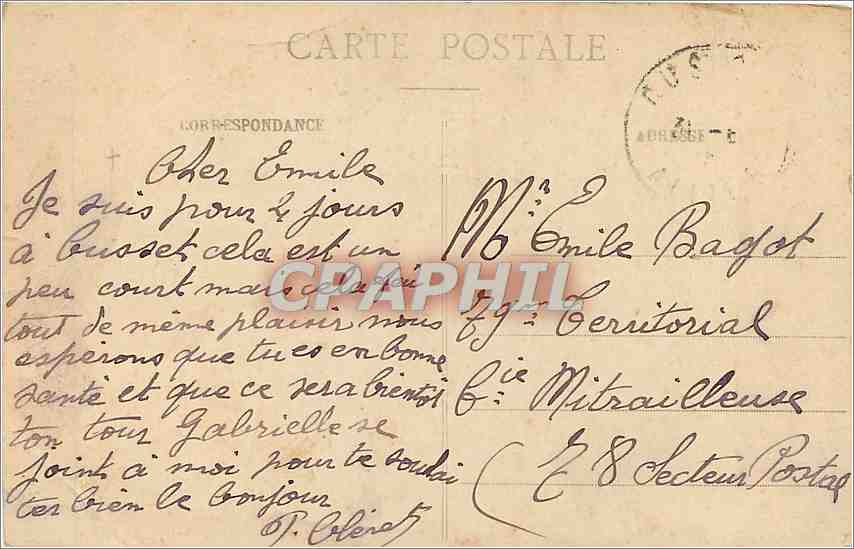 CARTE POSTALE
CORRESPONDANCE
ADRESSE
CUS
Cher Emile
Je suis pour 4 jours
à busset cela est un
peu court mais cela fai
tout de même plaisir nous
espérons que tu es en bonne
santé et que ce sera bientôt
ton tour Gabrielle se
joint à moi pour te souhai
ter bien le bonjour
P.
Mr Emile Bagot
79me Territorial
Cie Mitrailleuse
78 Secteur Postal
CPAPHIL